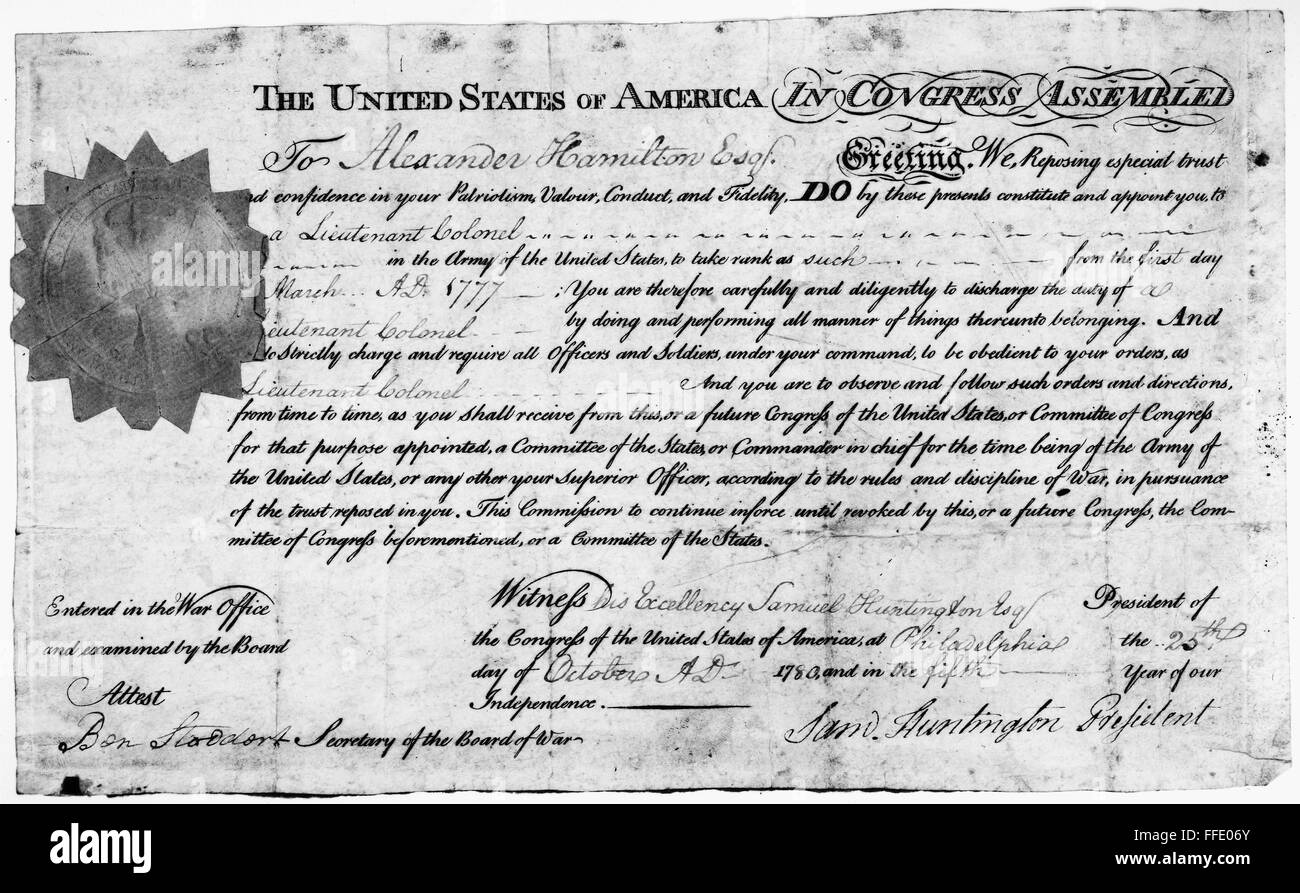 THE UNITED STATES OF AMERICA IN CONGRESS ASSEMBLED
To Alexander Hamilton Esqr. Greeting. We, Reposing especial trust
nd confidence in your Patriotism, Valour, Conduct, and Fidelity, DO by these presents constitute and appoint you, to
a Lieutenant Colonel
in the Army of the United States, to take rank as such from the first day
March AD. 1777 : You are therefore carefully and diligently to discharge the duty of a
Lieutenant Colonel by doing and performing all manner of things thereunto belonging. And
do Strictly charge and require all Officers and Soldiers, under your command, to be obedient to your orders, as
Lieutenant Colonel And you are to observe and follow such orders and directions,
from time to time, as you shall receive from this, or a future Congress of the United States, or Committee of Congress
for that purpose appointed, a Committee of the States, or Commander in chief for the time being of the Army of
the United States, or any other your Superior Officer, according to the rules and discipline of War, in pursuance
of the trust reposed in you. This Commission to continue inforce until revoked by this, or a future Congress, the Com-
mittee of Congress beforementioned, or a Committee of the States.
Entered in the War Office
and examined by the Board
Attest
Ben Stoddert Secretary of the Board of War
Witness His Excellency Samuel Huntington Esqr President of
the Congress of the United States of America, at Philadelphia the 25th
day of October AD. 1780, and in the fifth Year of our
Independence.
Sam. Huntington President
alamy
alamy
alamy
alamy
a
a
a
alamy
Image ID: FFE06Y
www.alamy.com